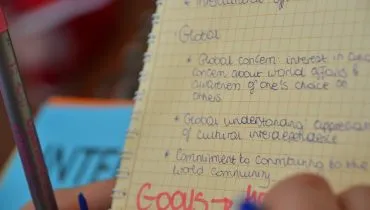 Global
• Global concern interest in
concern about world affairs &
awareness of one's choice on
others
• Global understanding
of cultural interdependence
• Commitment to contributing to the
world community
Goals →
INTE